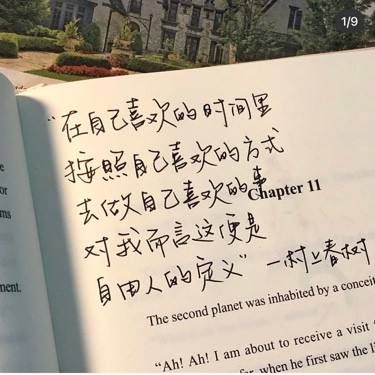 1/9
"在自己喜欢的时间里
按照自己喜欢的方式
去做自己喜欢的事
对我而言这便是
自由人的定义" —村上春树
Chapter 11
The second planet was inhabited by a conceit
"Ah! Ah! I am about to receive a visit
far, when he first saw the li
e
or
ms
ment.